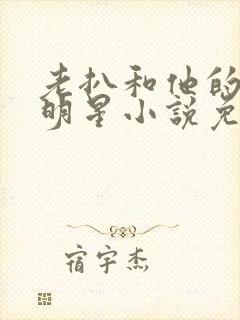 老扒和他的
明星小說免
宿宇杰